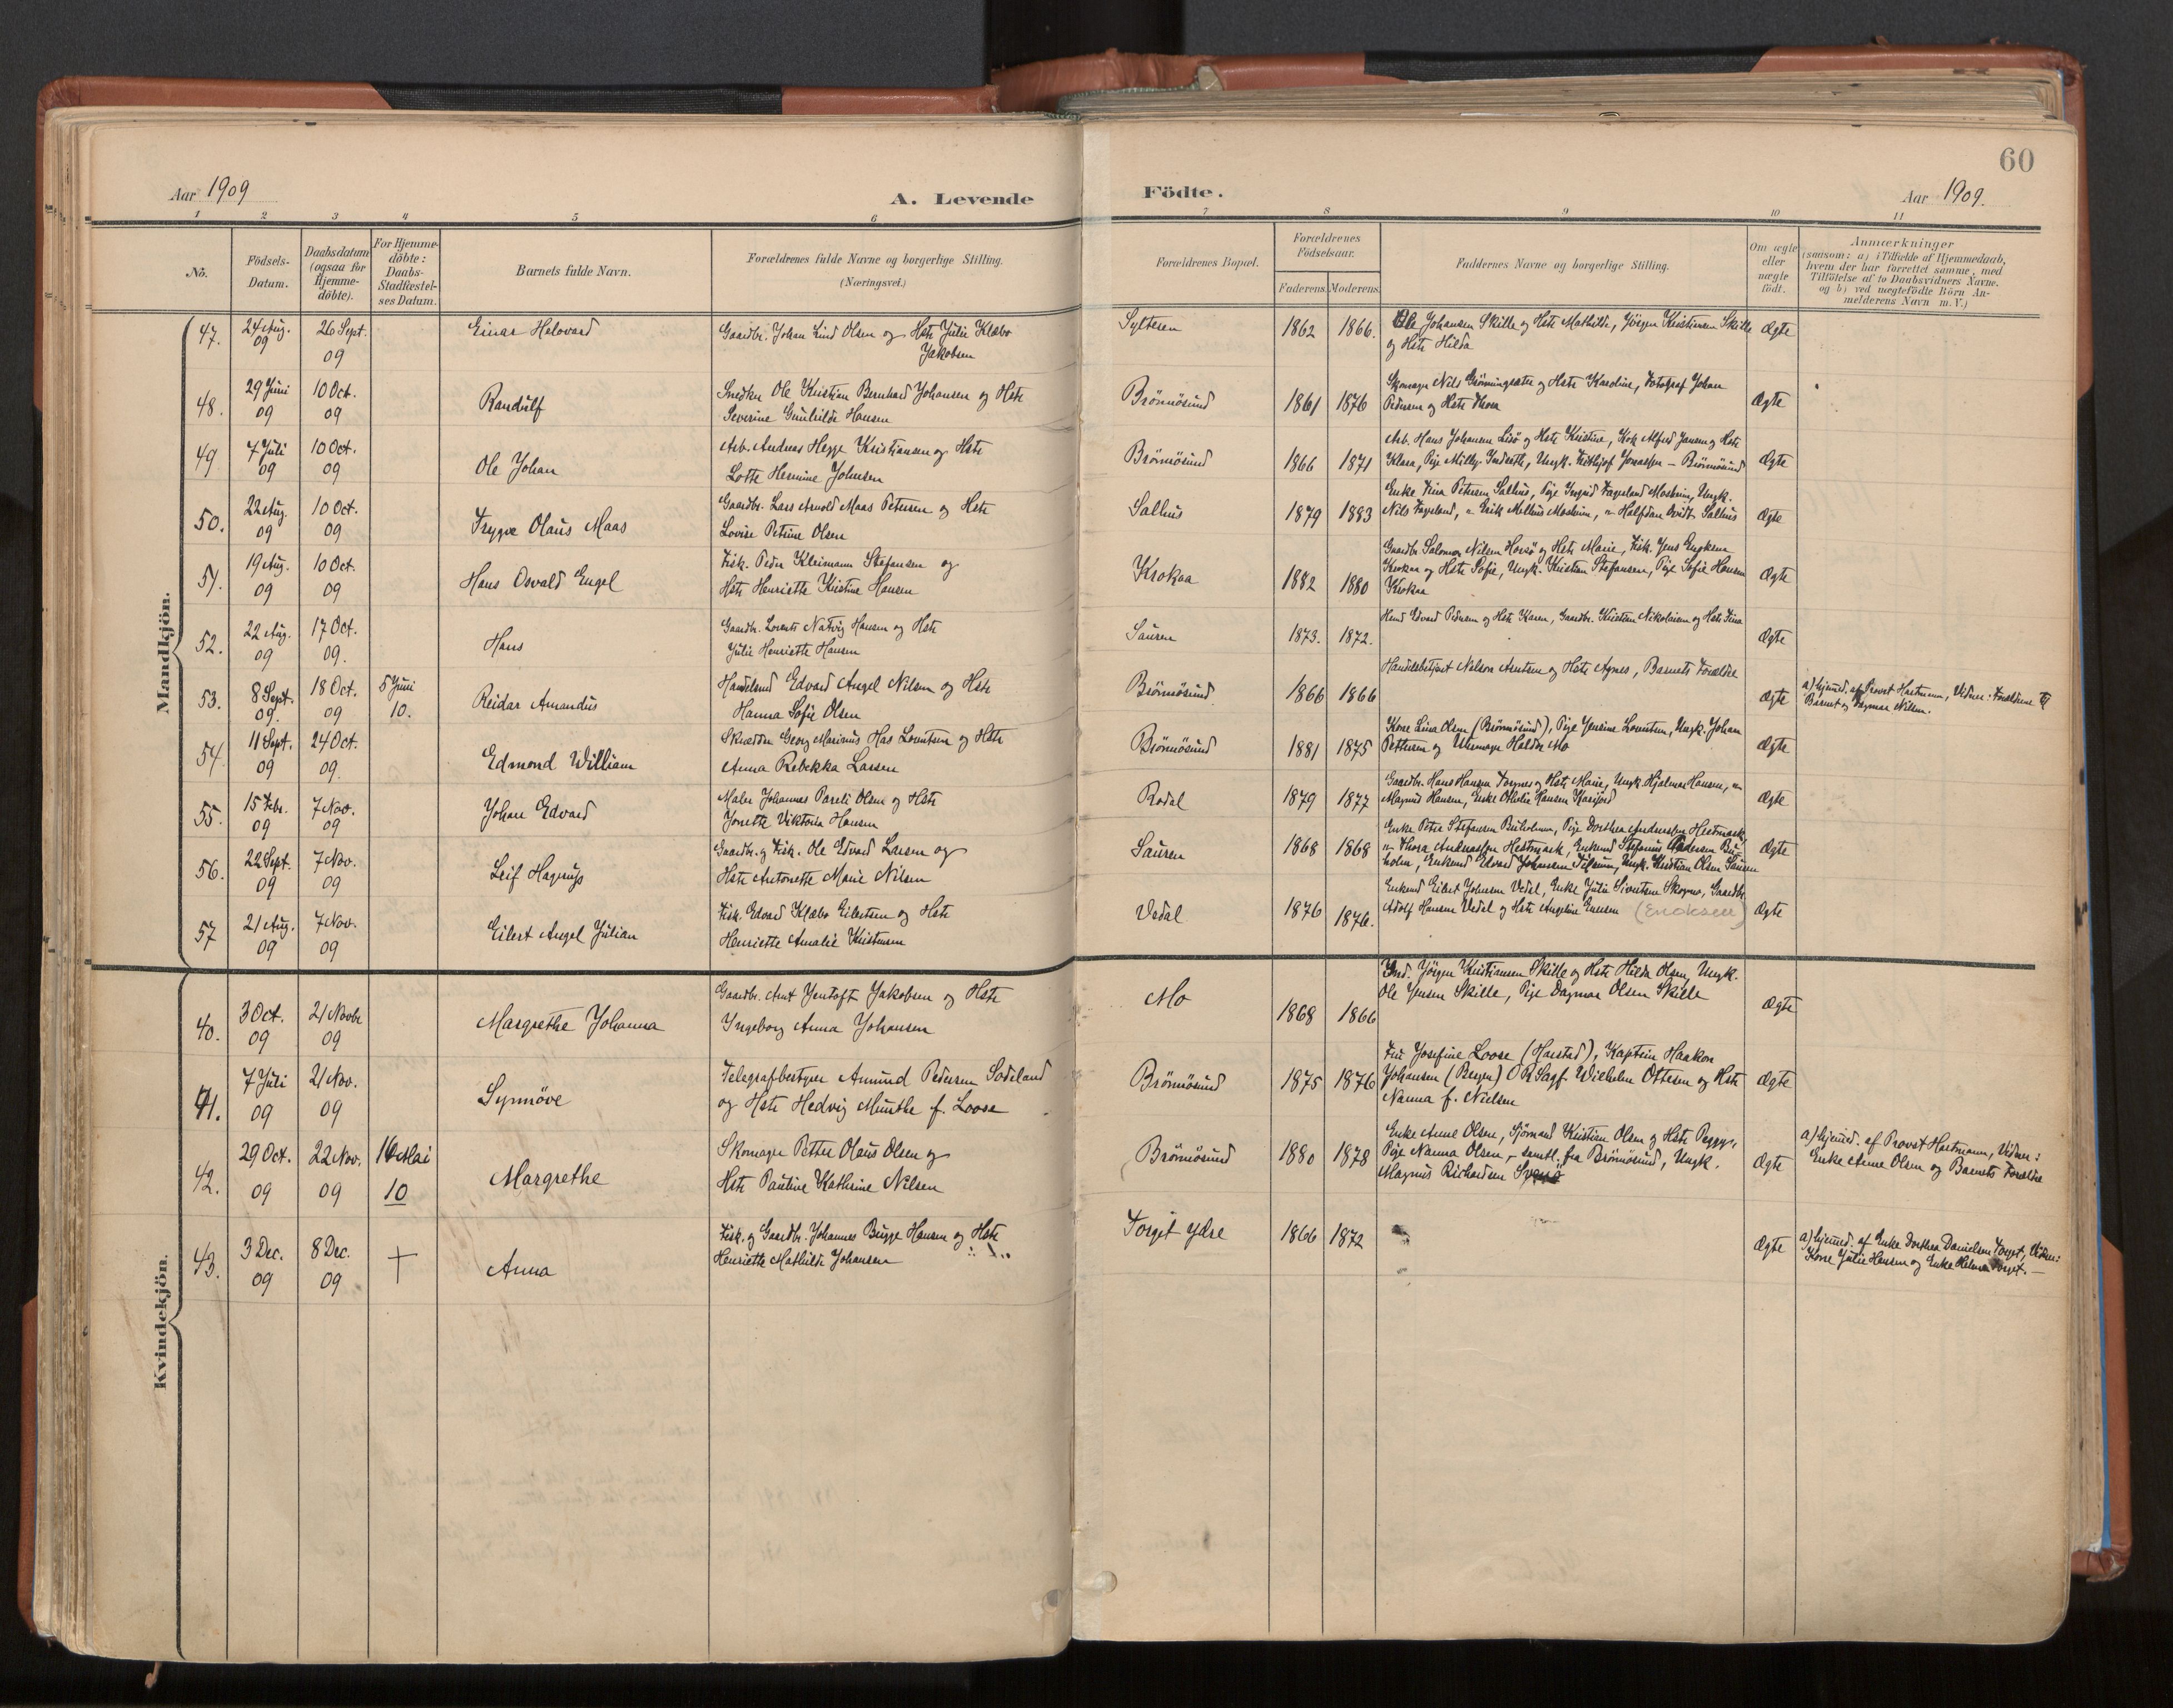 60
Aar 1909
A. Levende
Födte.
Aar 1909.
1 2 3 4 5 6 7 8 9 10 11
No.
Födsels-
Datum.
Daabsdatum
(ogsaa for
Hjemme-
döbte).
For Hjemme-
döbte:
Daabs-
Stadfæstel-
ses Datum.
Barnets fulde Navn.
Forældrenes fulde Navne og borgerlige Stilling.
(Næringsvei.)
Forældrenes Bopæl.
Forældrenes
Födselsaar.
Faderens. Moderens.
Faddernes Navne og borgerlige Stilling.
Om ægte
eller
uægte
födt.
Anmærkninger
(saasom: a) i Tilfælde af Hjemmedaab,
hvem der har forrettet samme, med
Tilföielse af to Daabsvidners Navne.
og b) ved uægtefödte Börn An-
melderens Navn m. V.)
Mandkjön.
47. 24 Aug. 09 26 Sept. 09
Einar Halovard
Gaardbr. Johan Lind Olsen og Hstr Julie Klæbo
Jakobsen
Sylteren 1862 1866.
Ole Johansen Skille og Hstr Mathilde, Jörgen Kristiansen Skille
og Hstr Hilda
Ægte
48. 29 Juni 09 10 Oct. 09
Randulf
Snedker Ole Kristian Bernhard Johansen og Hstr
Severine Gunhilde Hansen
Brönnösund 1861 1876
Skomager Nils Grönningsæter og Hstr Karoline, Fotograf Johan
Pedersen og Hstr Thora
Ægte
49 7 Juli 09 10 Oct. 09
Ole Johan
Arb. Andreas Hegge Kristiansen og Hstr
Lotte Hermine Johnsen
Brönnösund 1866 1871
Arb. Hans Johansen Lisö og Hstr Kristine, Kok Alfred Jansen og Hstr
Klara, Pige Milly Inderöth, Ungk. Frithjof Jonassen - Brönnösund
Ægte
50. 22 Aug. 09 10 Oct. 09
Trygve Olaus Maas
Gaardbr. Lars Arnold Maas Petersen og Hstr
Lovise Petrine Olsen
Salhus 1879 1883
Enke Fina Petersen Salhus, Pige Ingrid Fageland Mosheim, Ungk.
Nils Fageland, " Erik Melhus Mosheim, " Halfdan Qvidt Salhus
Ægte
51. 19 Aug. 09 10 Oct. 09
Hans Osvald Engel
Fisk. Peder Kleimann Stefansen og
Hstr Henriette Kristine Hansen
Krokaa 1882 1880
Gaardbr Salomon Nilsen Horsö og Hstr Marie, Fisk. Jens
Krokaa og Hstr Sofie, Ungk. Kristian Stefansen, Pige Sofie Hansen
Krokaa
Ægte
52. 22 Aug. 09 17 Oct. 09.
Hans
Gaardbr. Lorents Natvig Hansen og Hstr
Julie Henriette Hansen
Sauren 1873. 1872.
Edvard Pedersen og Hstr Karen, Gaardbr. Kristian Nikolaisen og Hstr Fina
Ægte
53. 8 Sept. 09. 18 Oct. 09 5 Juni 10.
Reidar Amandus
Handelsmd Edvard Angel Nilsen og Hstr
Hanna Sofie Olsen
Brönnösund 1866 1866
Handelsbetjent Nelson Arntsen og Hstr Agnes, Barnets Forældre
Ægte
a) hjemd. af Provst Hartmann, Vidner: Forældrene til
Barnet og Dagmar Nilsen.
54. 11 Sept. 09 24 Oct. 09.
Edmond William
Skrædder Georg Marinus Has Lorentsen og Hstr
Anna Rebekka Larsen
Brönnösund 1881 1875
Kone Lina Olsen (Brönnösund), Pige Jensine Lorentsen, Ungk. Johan
Pettersen og Uhrmager Haldor Mo
Ægte
55. 15 Febr. 09 7 Nov. 09
Johan Edvard
Maler Johannes Pareli Olsen og Hstr
Jonette Viktoria Hansen
Rodal 1879 1877
Gaardbr. Hans Hansen Torgnes og Hstr Marie, Ungk Hjalmar Hansen, "
Magnus Hansen, Enke Othelie Hansen
Ægte
56. 22 Sept. 09 7 Nov. 09
Leif Hagrup
Gaardbr. og Fisk. Ole Edvard Larsen og
Hstr Antonette Marie Nilsen
Sauren 1868 1868
Enke Petra Stefansen Buholmen, Pige Dorthea Andreassen Hestmark,
" Thora Andreassen Hestmark, Enkemd Stefanus Pedersen Bu-
holm, Enkemd Edvard Johansen Tilrum, Ungk. Kristian Olsen Sauren
Ægte
57 21 Aug. 09 7 Nov. 09
Eilert Angel Julian
Fisk. Edvard Klæbo Eilertsen og Hstr
Henriette Amalie Kristensen
Vedal 1876 1876.
Enkemd Eilert Johnsen Vedal, Enke Julie Sivertsen Skogmo, Gaardbr
Adolf Hansen Vedal og Hstr Angeline (Ericksen)
Ægte
Kvindekjön.
40. 3 Oct. 09 21 Novbr 09
Margrethe Johanna
Gaardbr. Arnt Jentoft Jakobsen og Hstr
Ingeborg Anna Johansen
Mo 1868 1866
Ind. Jörgen Kristiansen Skille og Hstr Hilda Olsen, Ungk.
Ole Jensen Skille, Pige Dagmar Olsen Skille
Ægte
41. 7 Juli 09 21 Nov. 09
Synnöve
Telegrafbestyrer Amund Pedersen Sodeland
og Hstr Hedvig Munthe f. Loose
Brönnösund 1875 1876
Fru Josefine Loose (Harstad), Kaptein Haakon
Johansen (Bergen) O R Sagf. Wilhelm Ottesen og Hstr
Nanna f. Nielsen
Ægte
42. 29 Oct. 09 22 Nov. 09 16 Mai 10
Margrethe
Skomager Petter Olaus Olsen og
Hstr Pauline Kathrine Nilsen
Brönnösund 1880 1878
Enke Anne Olsen, Sjömand Kristian Olsen og Hstr Peggy,
Pige Nanna Olsen, - samtl. fra Brönnösund, Ungk.
Magnus Richardsen
Ægte
a) hjemd. af Provst Hartmann, Vidner:
Enke Anne Olsen og Barnets Forældre
43. 3 Dec. 09 8 Dec. 09 †
Anna
Fisk. og Gaardbr. Johannes Bugge Hansen og Hstr
Henriette Mathilde Johansen
Torget ydre 1866 1872
Ægte
a) hjemd. af Enke Dorthea Danielsen Torget, Vidner:
Kone Julie Hansen og Enke Torget. -